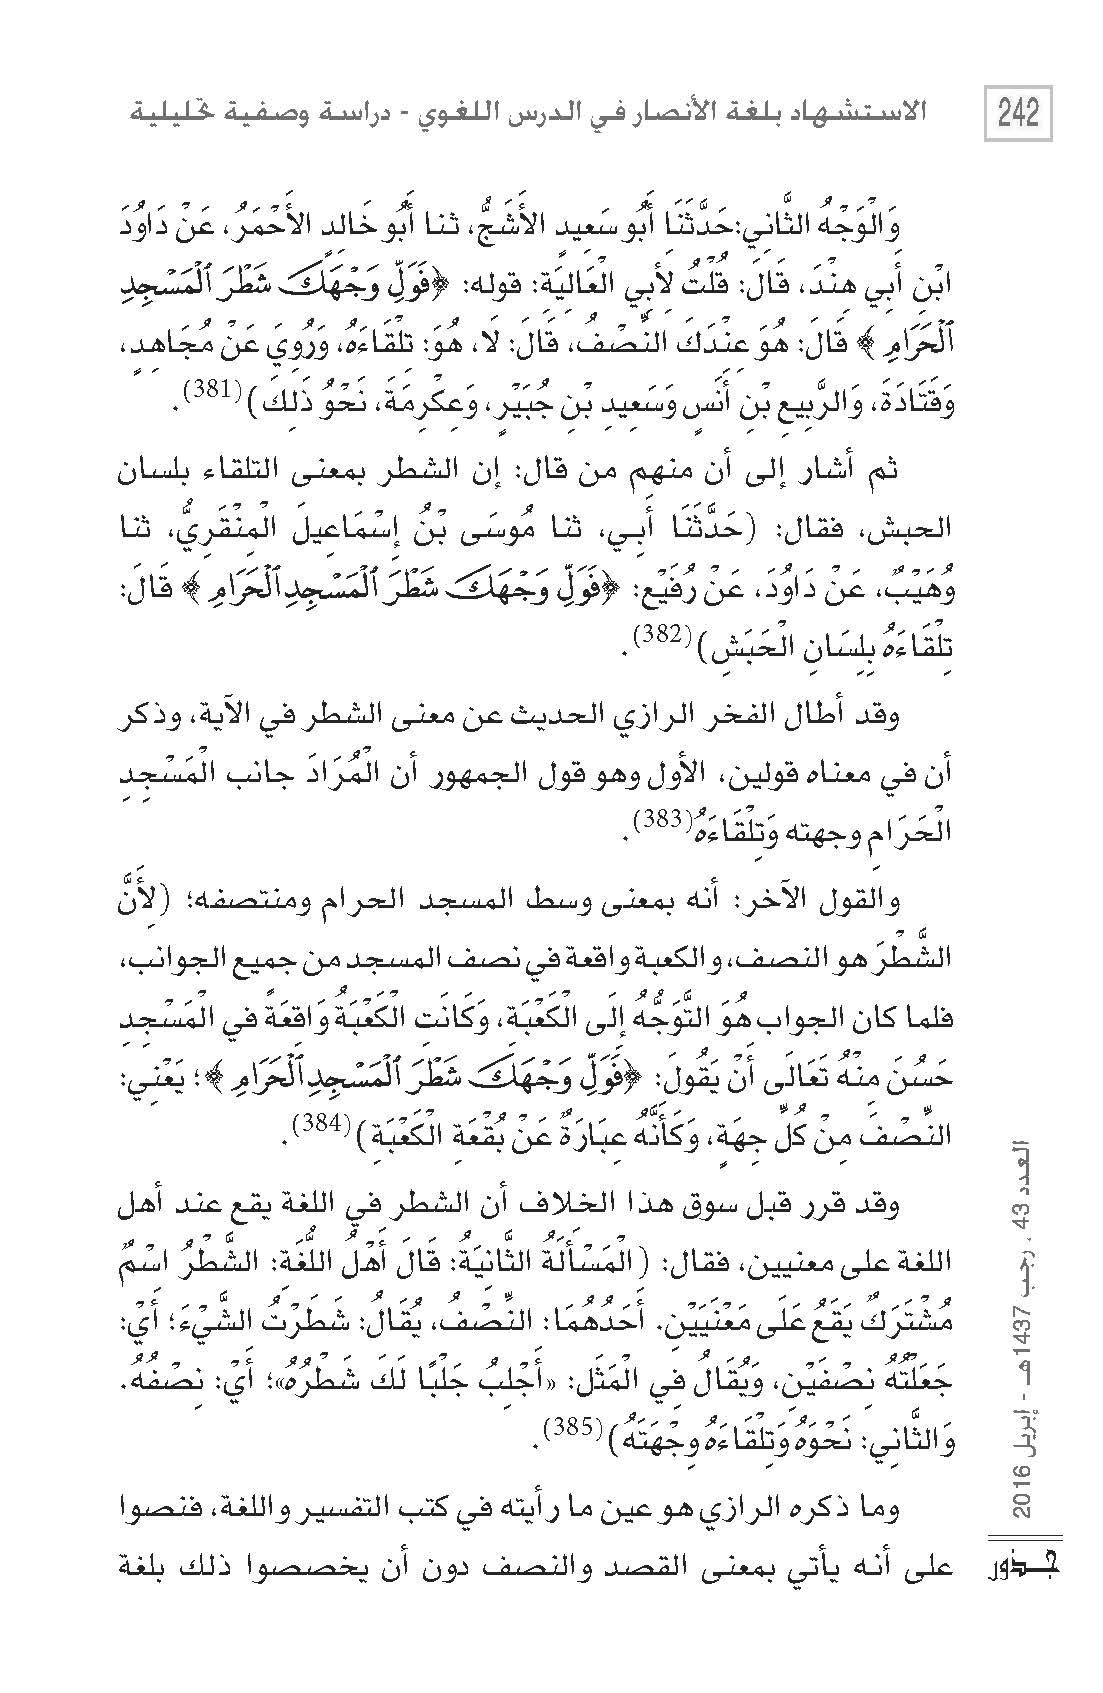 242
الاستشهاد بلغة الأنصار في الدرس اللغوي - دراسة وصفية تحليلية
وَالْوَجْهُ الثَّانِي:حَدَّثَنَا أَبُو سَعِيدٍ الْأَشَجُّ، ثنا أَبُو خَالِدٍ الْأَحْمَرُ، عَنْ دَاوُدَ
ابْنِ أَبِي هِنْدَ، قَالَ: قُلْتُ لِأَبِي الْعَالِيَةِ: قوله: ﴿فَوَلِّ وَجْهَكَ شَطْرَ ٱلْمَسْجِدِ
ٱلْحَرَامِ﴾ قَالَ: هُوَ عِنْدَكَ النِّصْفُ، قَالَ: لَا، هُوَ: تِلْقَاءَهُ، وَرُوِيَ عَنْ مُجَاهِدٍ،
وَقَتَادَةَ، وَالرَّبِيعِ بْنِ أَنَسٍ وَسَعِيدِ بْنِ جُبَيْرٍ، وَعِكْرِمَةَ، نَحْوُ ذَلِكَ)(381).
ثم أشار إلى أن منهم من قال: إن الشطر بمعنى التلقاء بلسان
الحبش، فقال: (حَدَّثَنَا أَبِي، ثنا مُوسَى بْنُ إِسْمَاعِيلَ الْمِنْقَرِيُّ، ثنا
وُهَيْبٌ، عَنْ دَاوُدَ، عَنْ رُفَيْعٍ: ﴿فَوَلِّ وَجْهَكَ شَطْرَ ٱلْمَسْجِدِ ٱلْحَرَامِ﴾ قَالَ:
تِلْقَاءَهُ بِلِسَانِ الْحَبَشِ)(382).
وقد أطال الفخر الرازي الحديث عن معنى الشطر في الآية، وذكر
أن في معناه قولين، الأول وهو قول الجمهور أن الْمُرَادَ جانب الْمَسْجِدِ
الْحَرَامِ وجهته وَتِلْقَاءَهُ(383).
والقول الآخر: أنه بمعنى وسط المسجد الحرام ومنتصفه؛ (لِأَنَّ
الشَّطْرَ هو النصف، والكعبة واقعة في نصف المسجد من جميع الجوانب،
فلما كان الجواب هُوَ التَّوَجُّهُ إِلَى الْكَعْبَةِ، وَكَانَتِ الْكَعْبَةُ وَاقِعَةً في الْمَسْجِدِ
حَسُنَ مِنْهُ تَعَالَى أَنْ يَقُولَ: ﴿فَوَلِّ وَجْهَكَ شَطْرَ ٱلْمَسْجِدِ ٱلْحَرَامِ﴾؛ يَعْنِي:
النِّصْفَ مِنْ كُلِّ جِهَةٍ، وَكَأَنَّهُ عِبَارَةٌ عَنْ بُقْعَةِ الْكَعْبَةِ)(384).
وقد قرر قبل سوق هذا الخلاف أن الشطر في اللغة يقع عند أهل
اللغة على معنيين، فقال: (الْمَسْأَلَةُ الثَّانِيَةُ: قَالَ أَهْلُ اللُّغَةِ: الشَّطْرُ اسْمٌ
مُشْتَرَكٌ يَقَعُ عَلَى مَعْنَيَيْنِ. أَحَدُهُمَا: النِّصْفُ، يُقَالُ: شَطَرْتُ الشَّيْءَ؛ أَيْ:
جَعَلْتُهُ نِصْفَيْنِ، وَيُقَالُ فِي الْمَثَلِ: «أَجْلِبُ جَلْبًا لَكَ شَطْرُهُ»؛ أَيْ: نِصْفُهُ.
وَالثَّانِي: نَحْوَهُ وَتِلْقَاءَهُ وجِهَتَهُ)(385).
وما ذكره الرازي هو عين ما رأيته في كتب التفسير واللغة، فنصوا
على أنه يأتي بمعنى القصد والنصف دون أن يخصصوا ذلك بلغة
العدد 43 ، رجب 1437هـ - إبريل 2016
جـذور